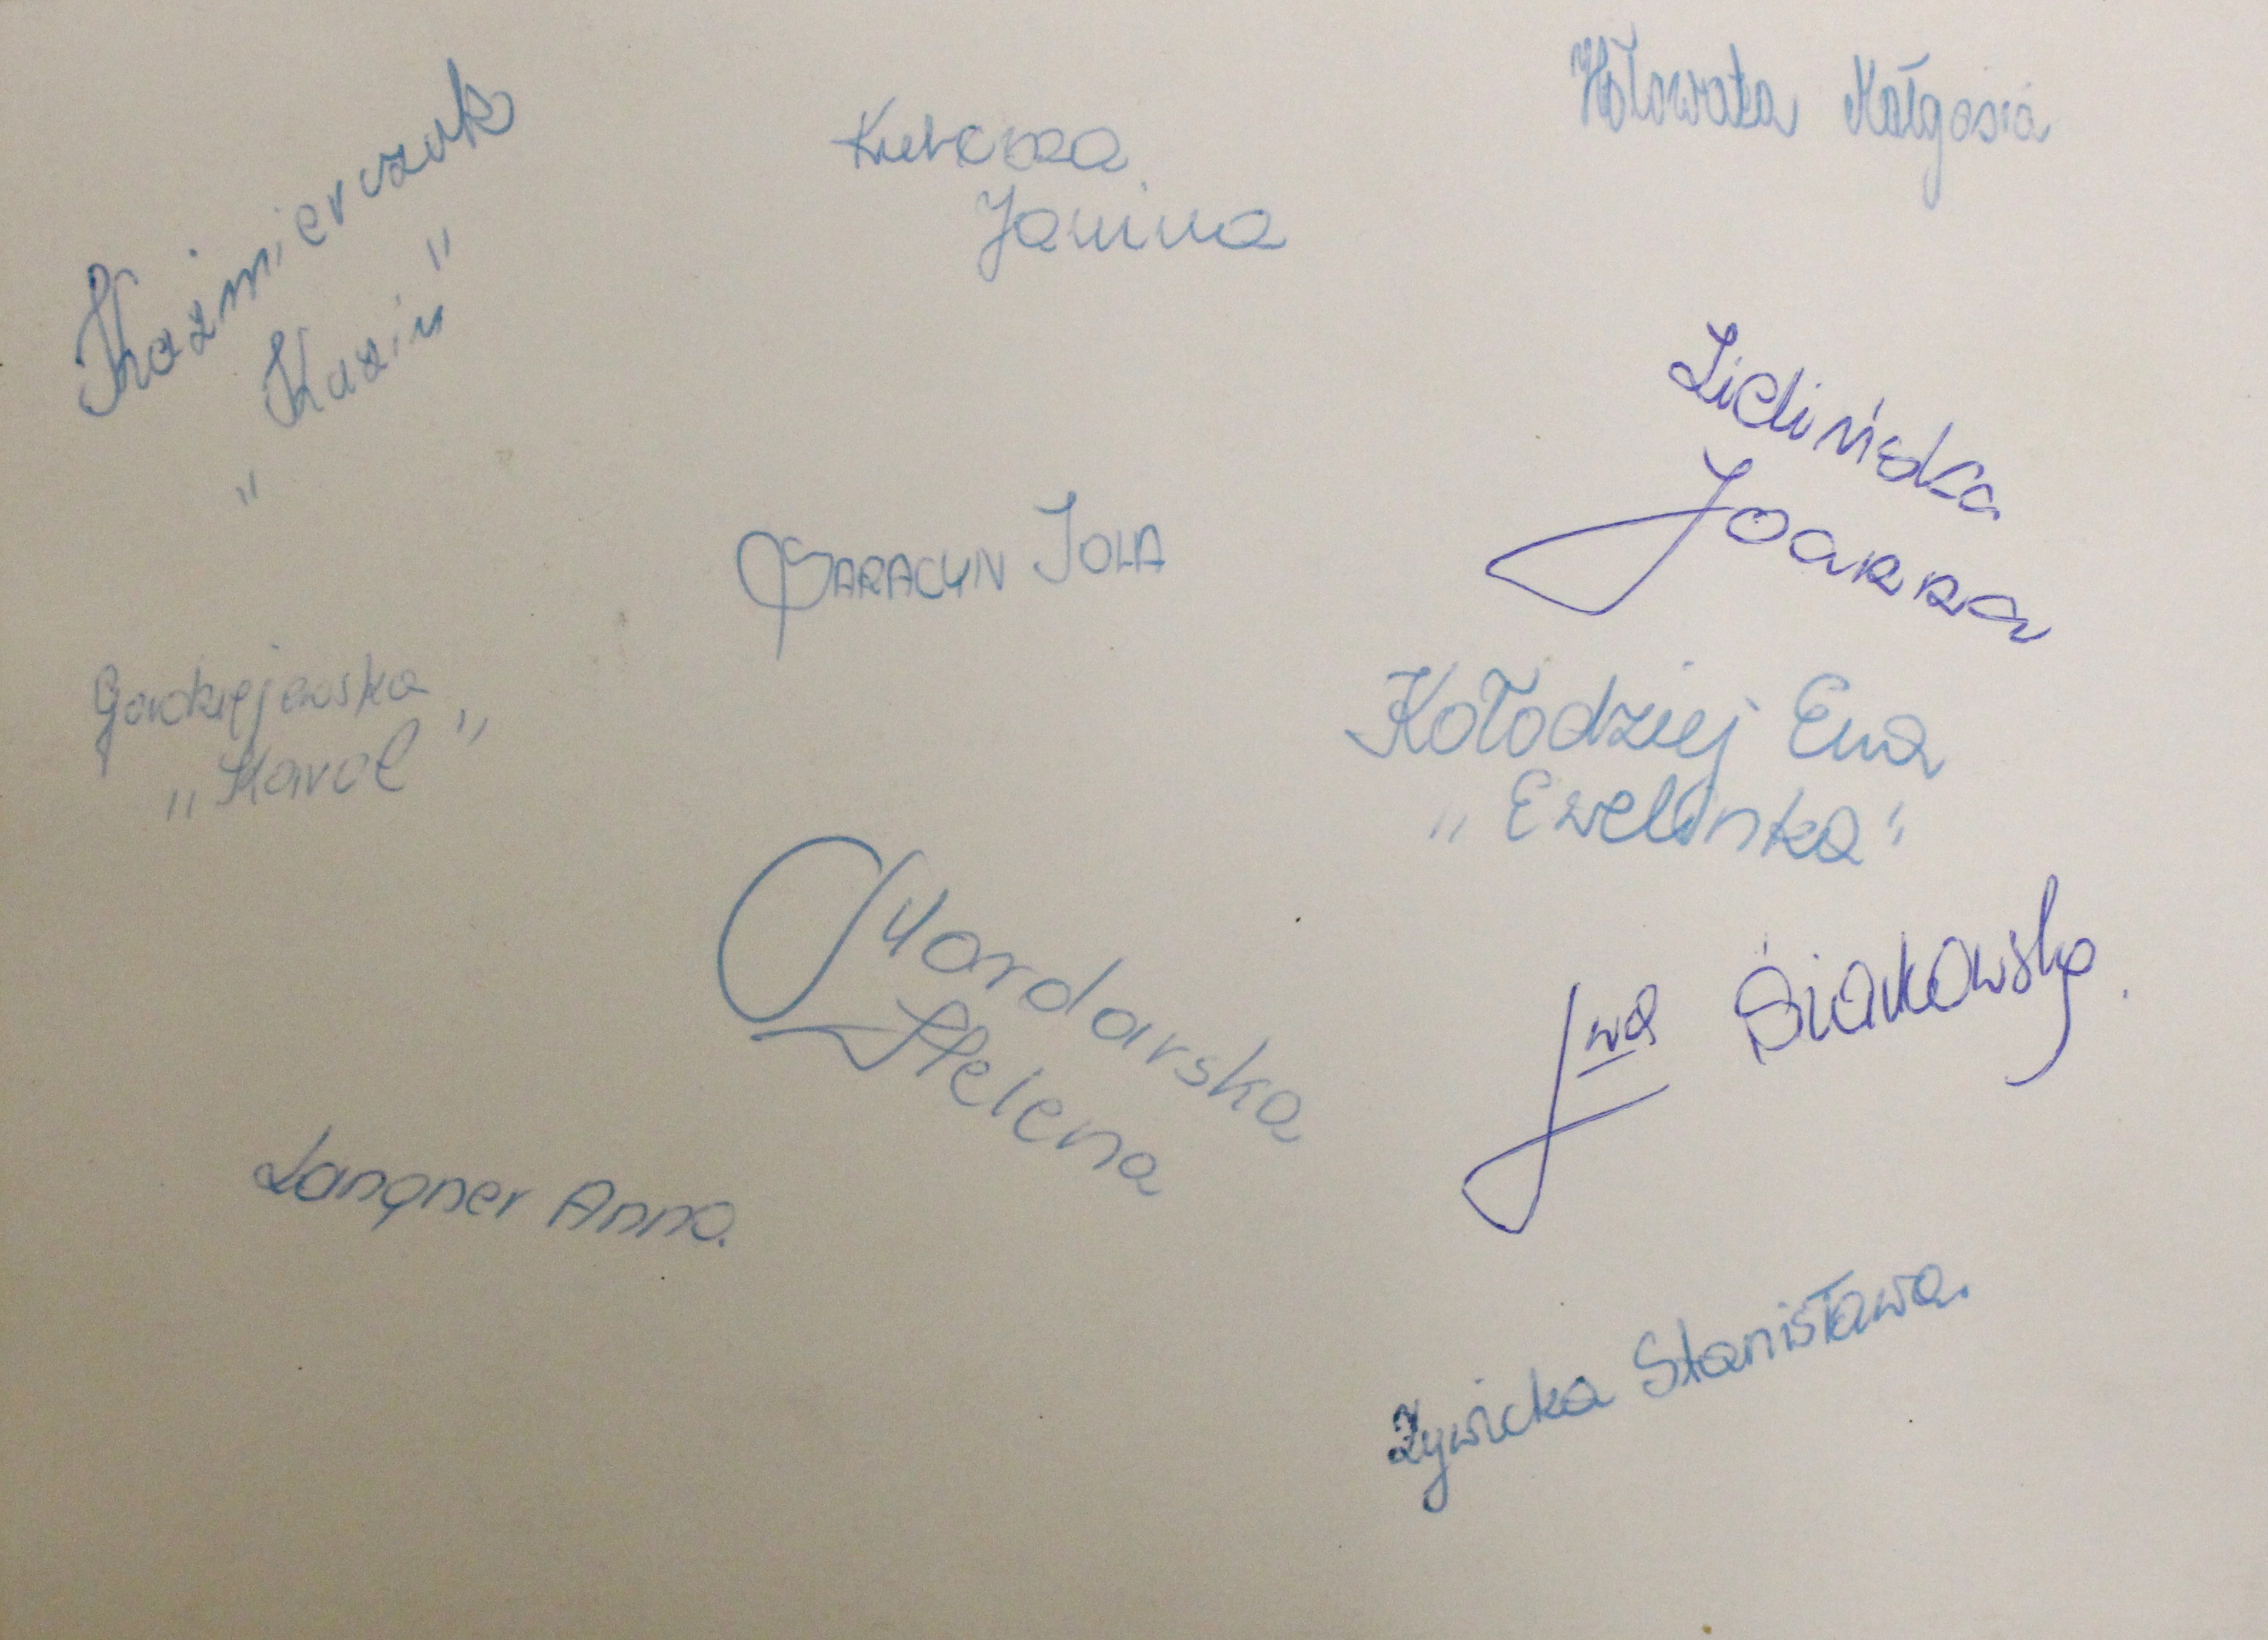 Kaźmierczak
"Kaziu"
Kubcza
Janina
Hołowata Małgosia
Zielińska
Joanna
SARACYN JOLA
Gordziejewska
"Karol"
Kołodziej Ewa
"Ewelinka"
Mardarska
Helena
Iwa Siakowska.
Langner Anna.
Żywicka Stanisława.